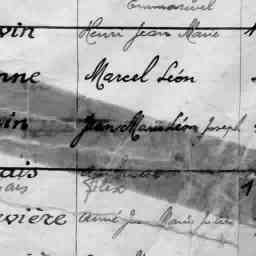 Emmanuel
vin Henri Jean Marie
nne Marcel Léon
vin Jean Marie Léon Joseph
ais
ais Félix
evière Aimé Jean Marie